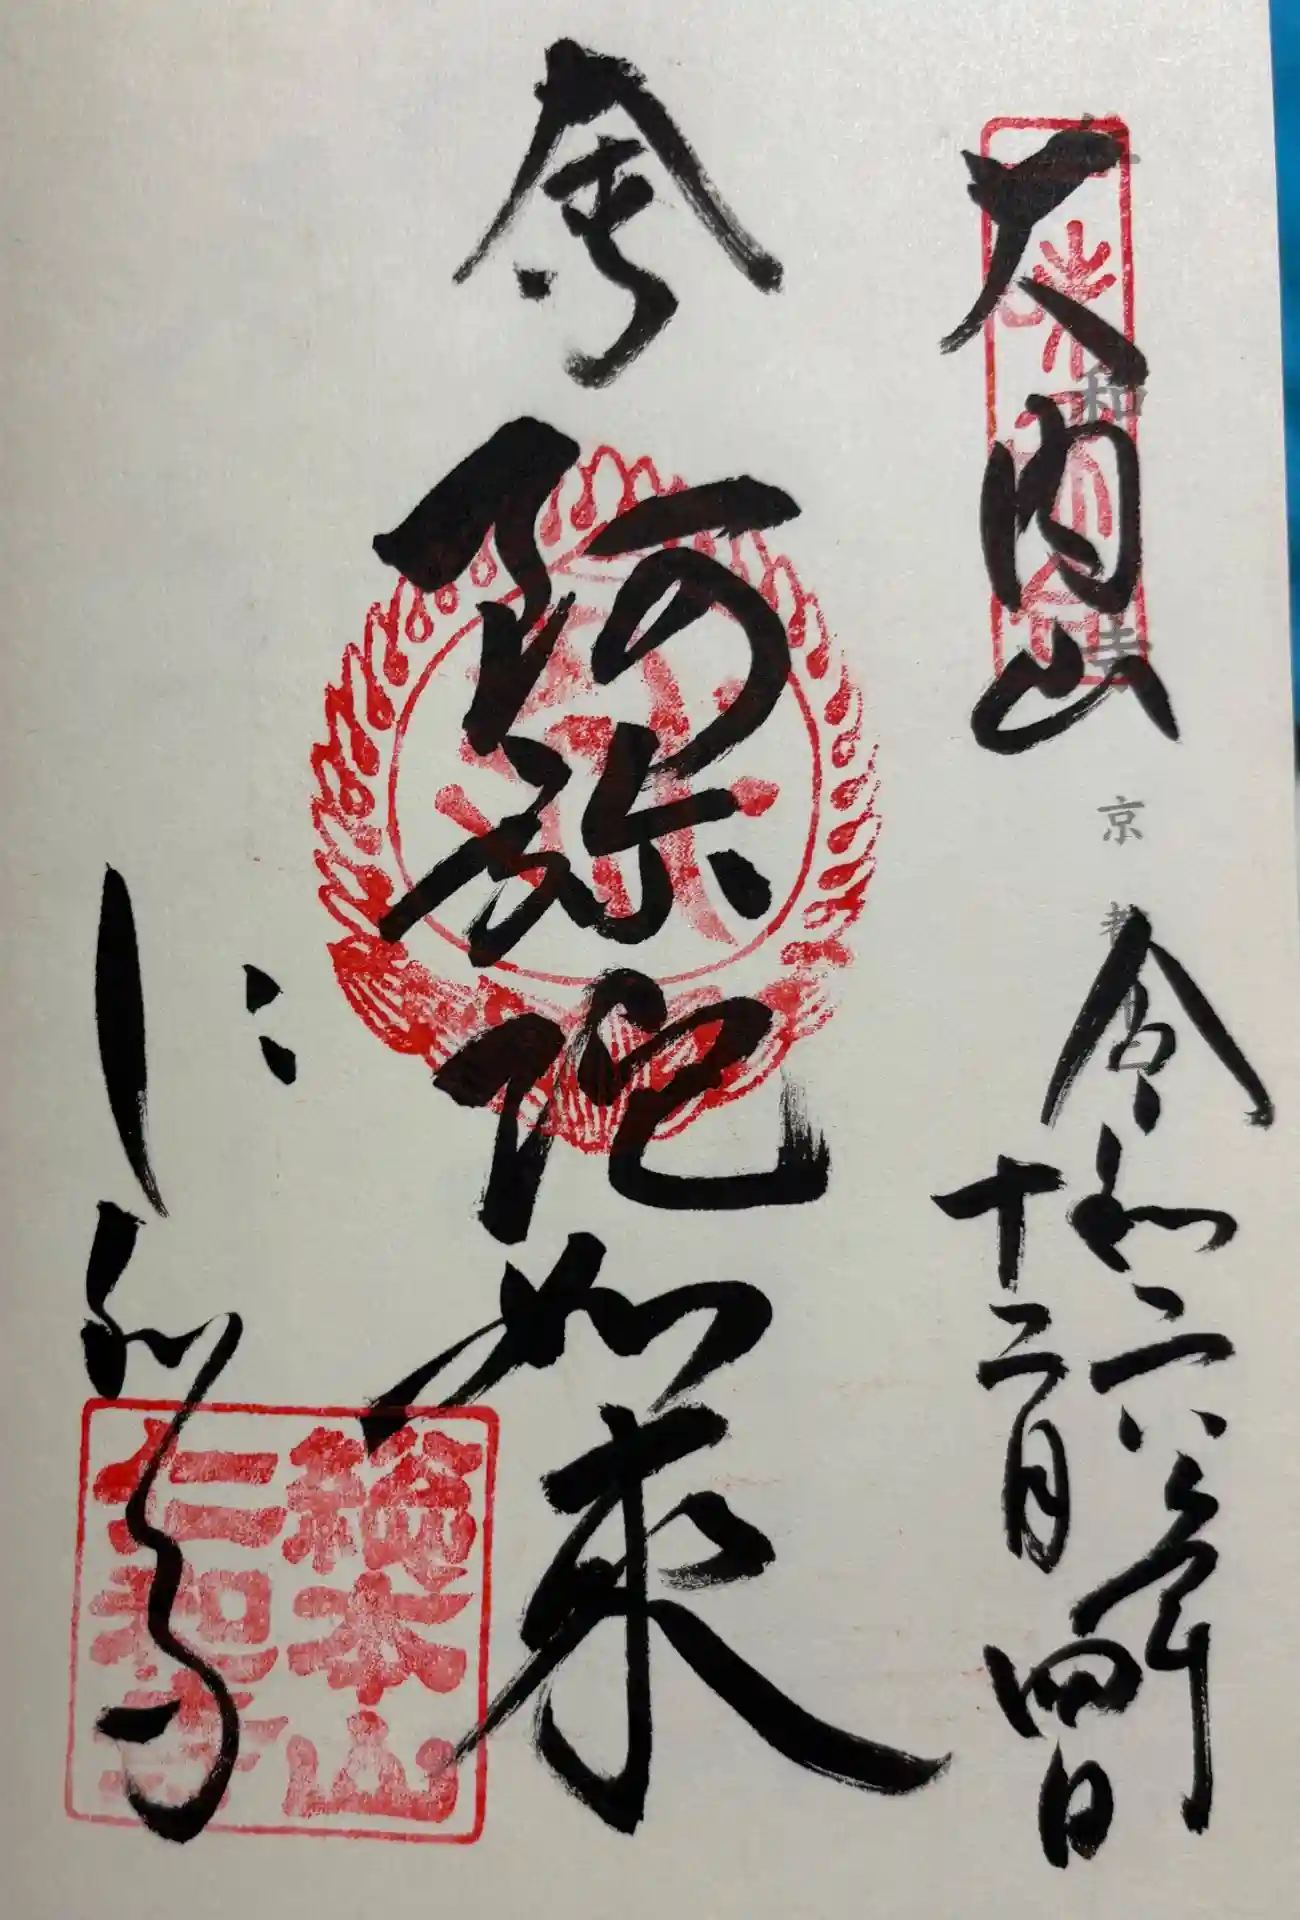 大内山
令和六年
十二月四日
阿弥陀如来
仁和寺
総本山
仁和寺
和寺
京都